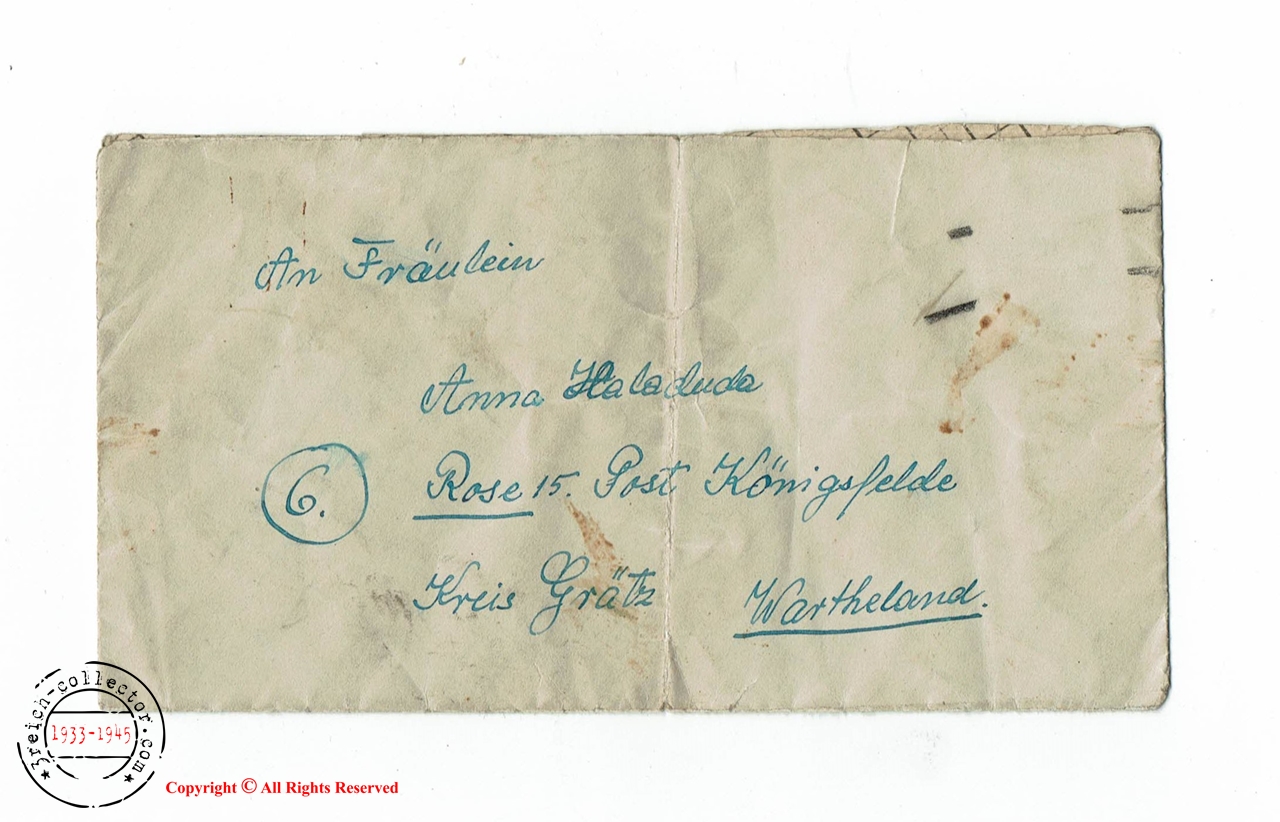 An Fräulein
Anna Haladuda
6. Rose 15. Post Königsfelde
Kreis Grätz Wartheland.
3reich-collector.com
1933-1945
Copyright © All Rights Reserved